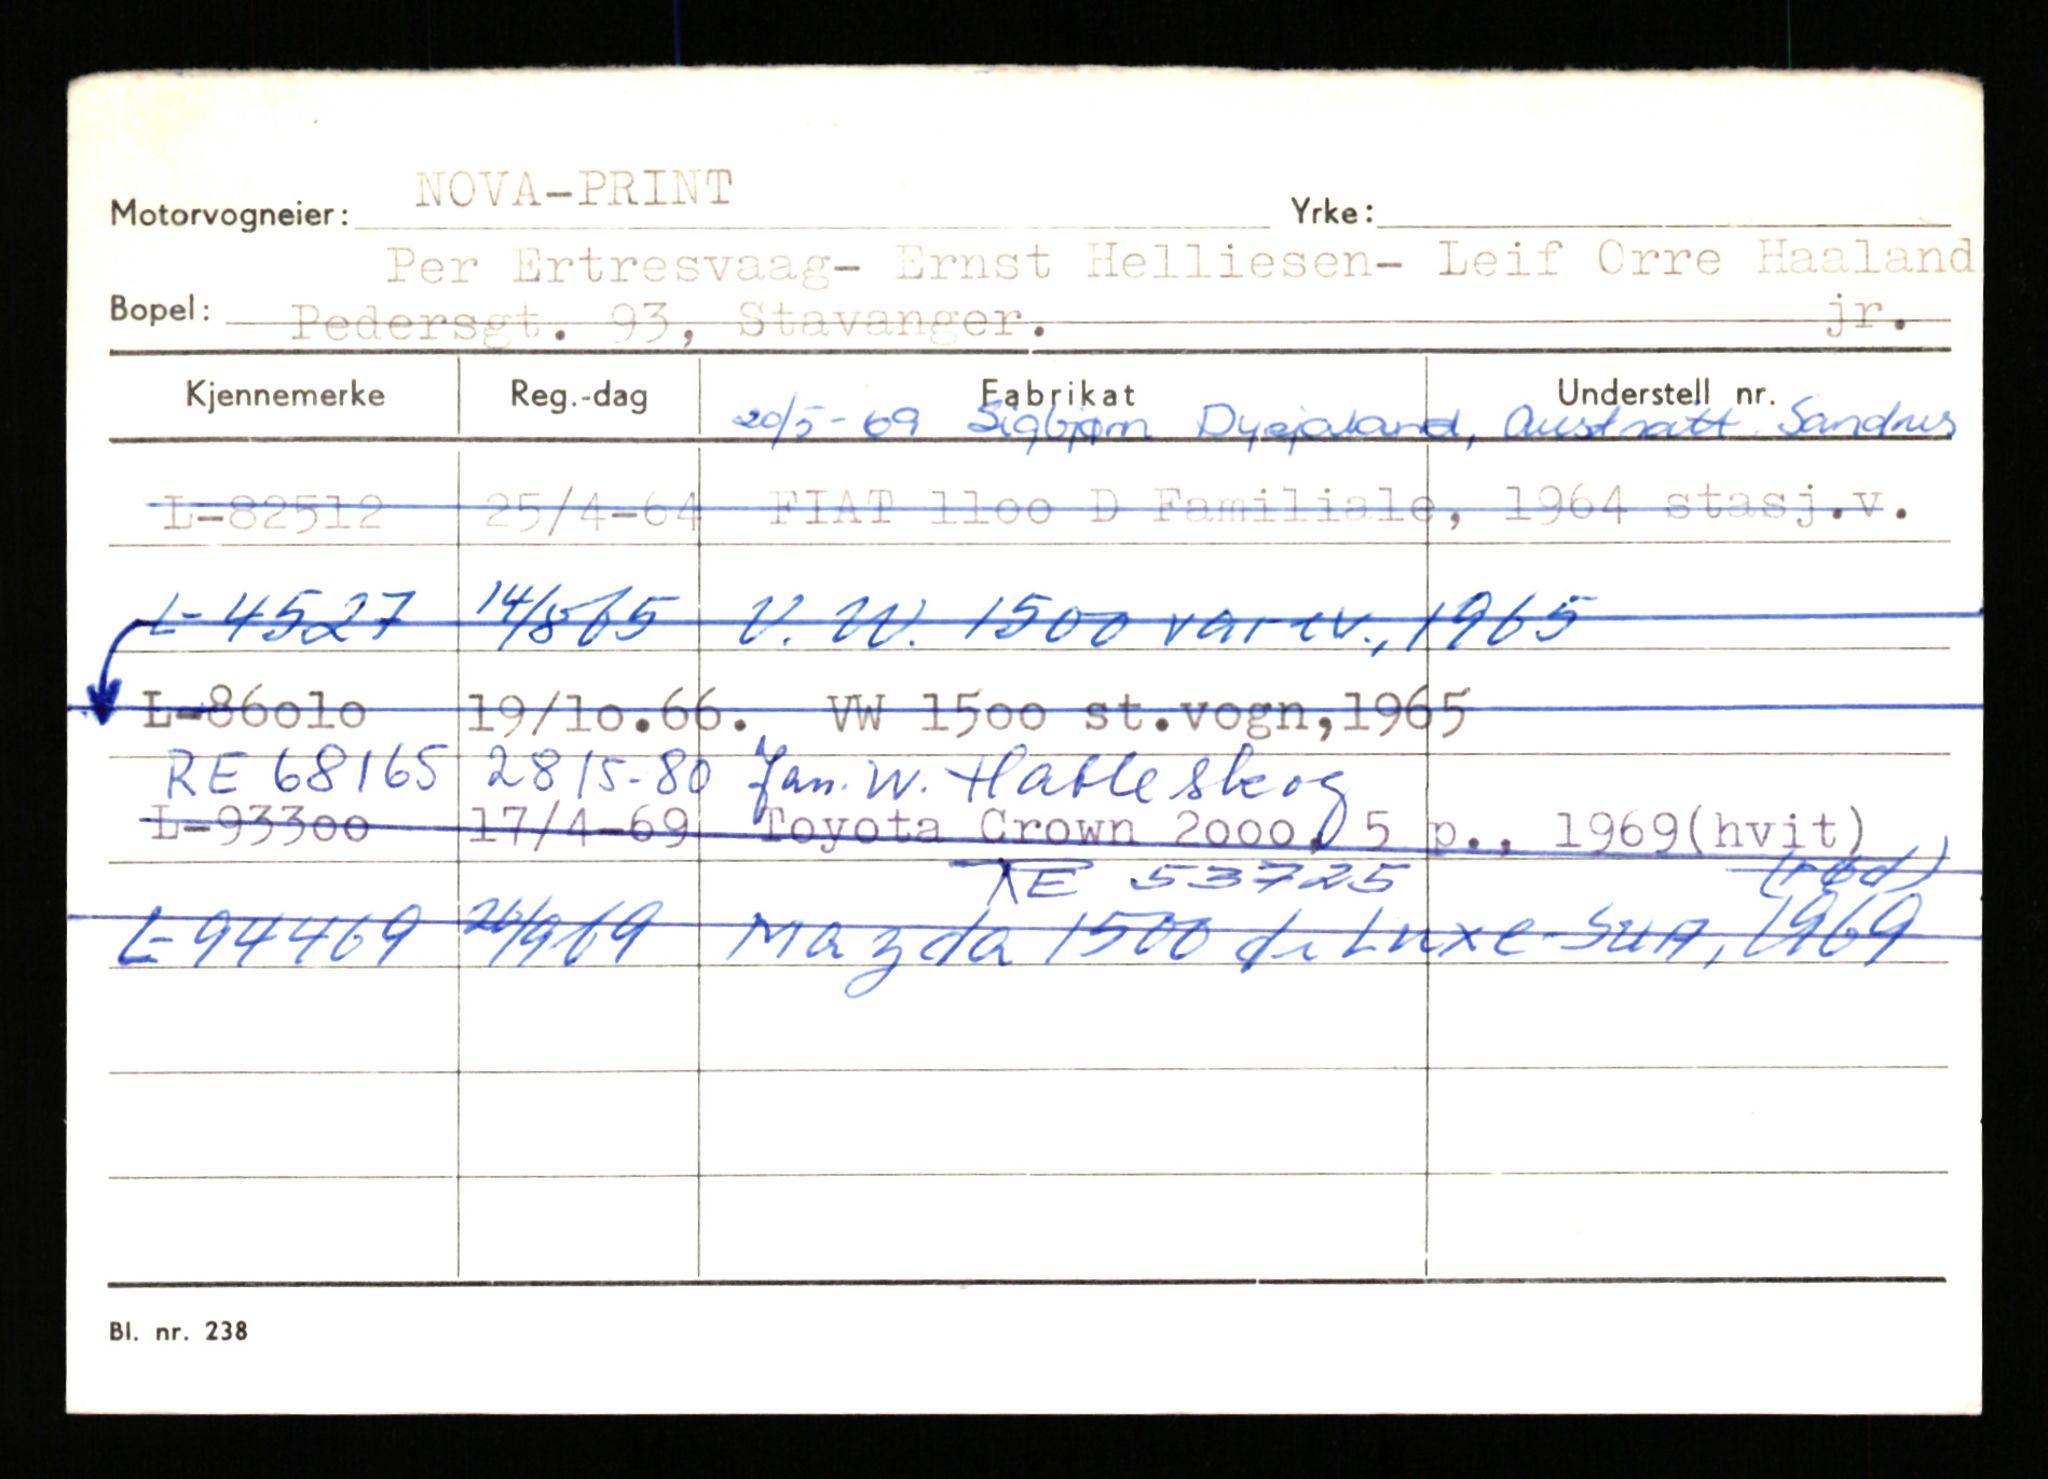 Motorvogneier: NOVA-PRINT Yrke:
Per Ertresvaag- Ernst Helliesen- Leif Orre Haaland
Bopel: Pedersgt. 93, Stavanger. jr.
Kjennemerke Reg.-dag Fabrikat Understell nr.
20/5-69 Sigbjørn Dysjaland, Austratt Sandnes
L-82512 25/4-64 FIAT 11oo D Familiale, 1964 stasj.v.
L-4527 14/8 65 V.W. 1500 varev., 1965
L-86olo 19/lo.66. VW 15oo st.vogn,1965
RE 68165 28/5-80 Jan. W. Hatleskog
L-933oo 17/4-69 Toyota Crown 2000, 5 p., 1969(hvit)
53725 (rød)
L-94469 26/9 69 Mazda 1500 de Luxe-SUA, 1969
Bl. nr. 238